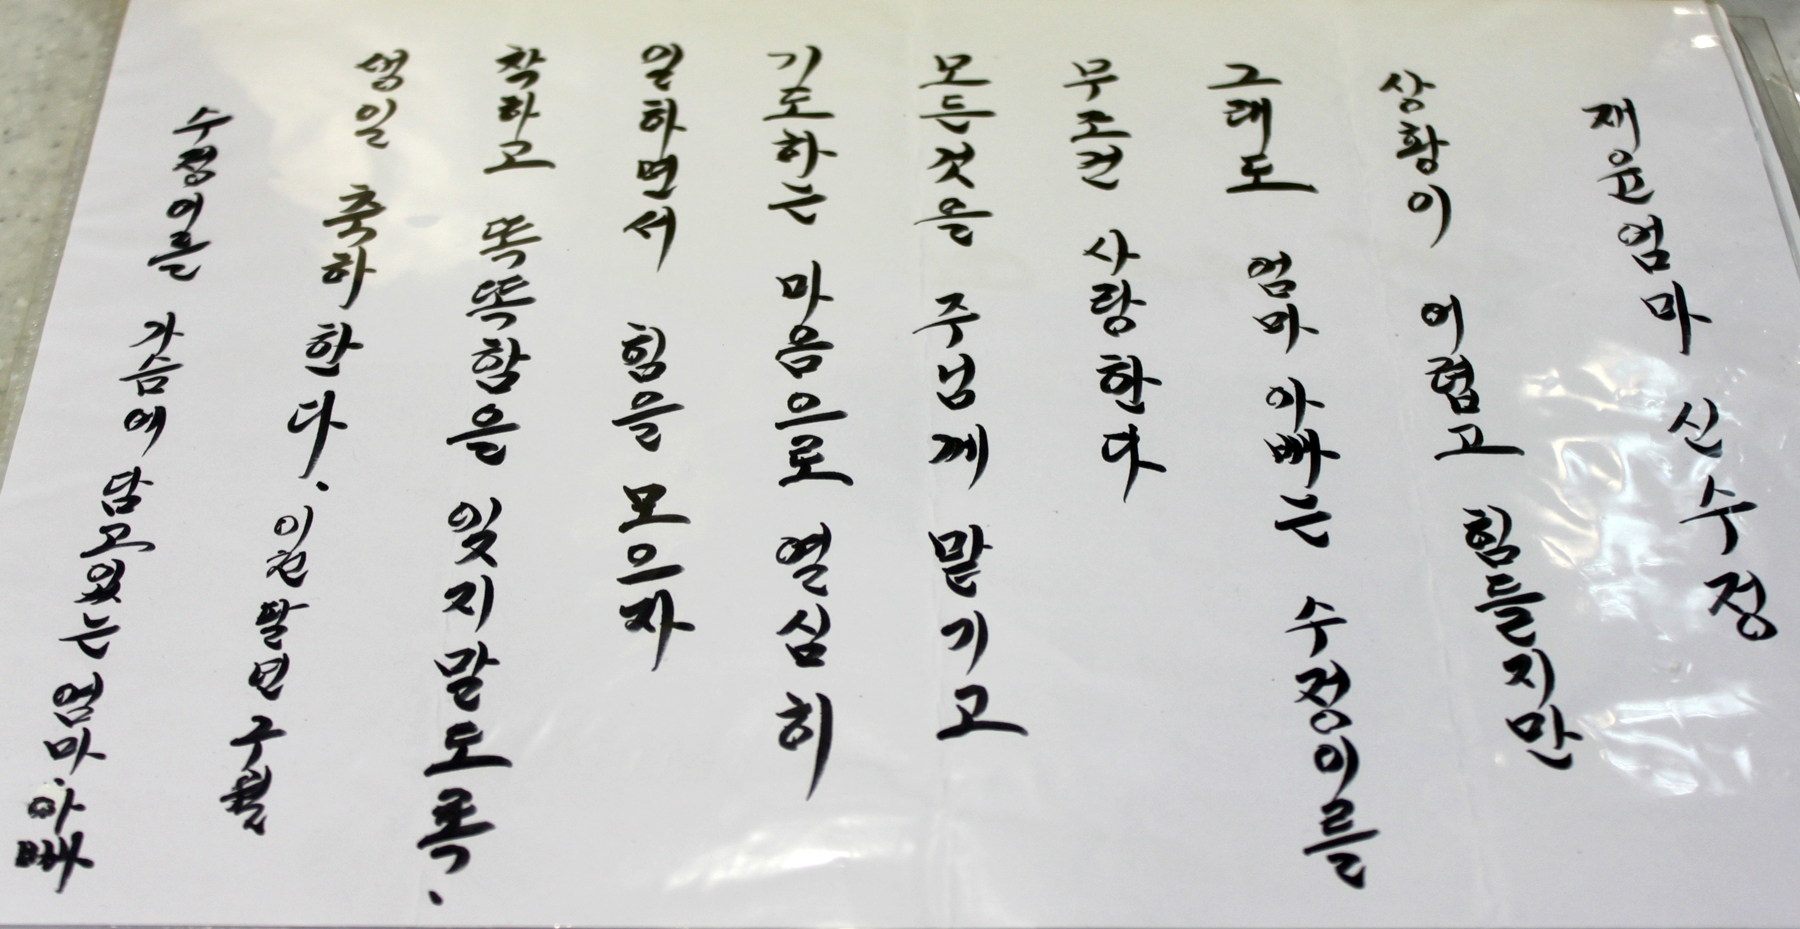 재윤엄마 신수정
상황이 어렵고 힘들지만
그래도 엄마 아빠는 수정이를
무조건 사랑한다
모든것을 주님께 맡기고
기도하는 마음으로 열심히
일하면서 힘을 모으자
착하고 똑똑함을 잊지말도록.
생일 축하한다.
수정이를 가슴에 담고있는 엄마.아빠